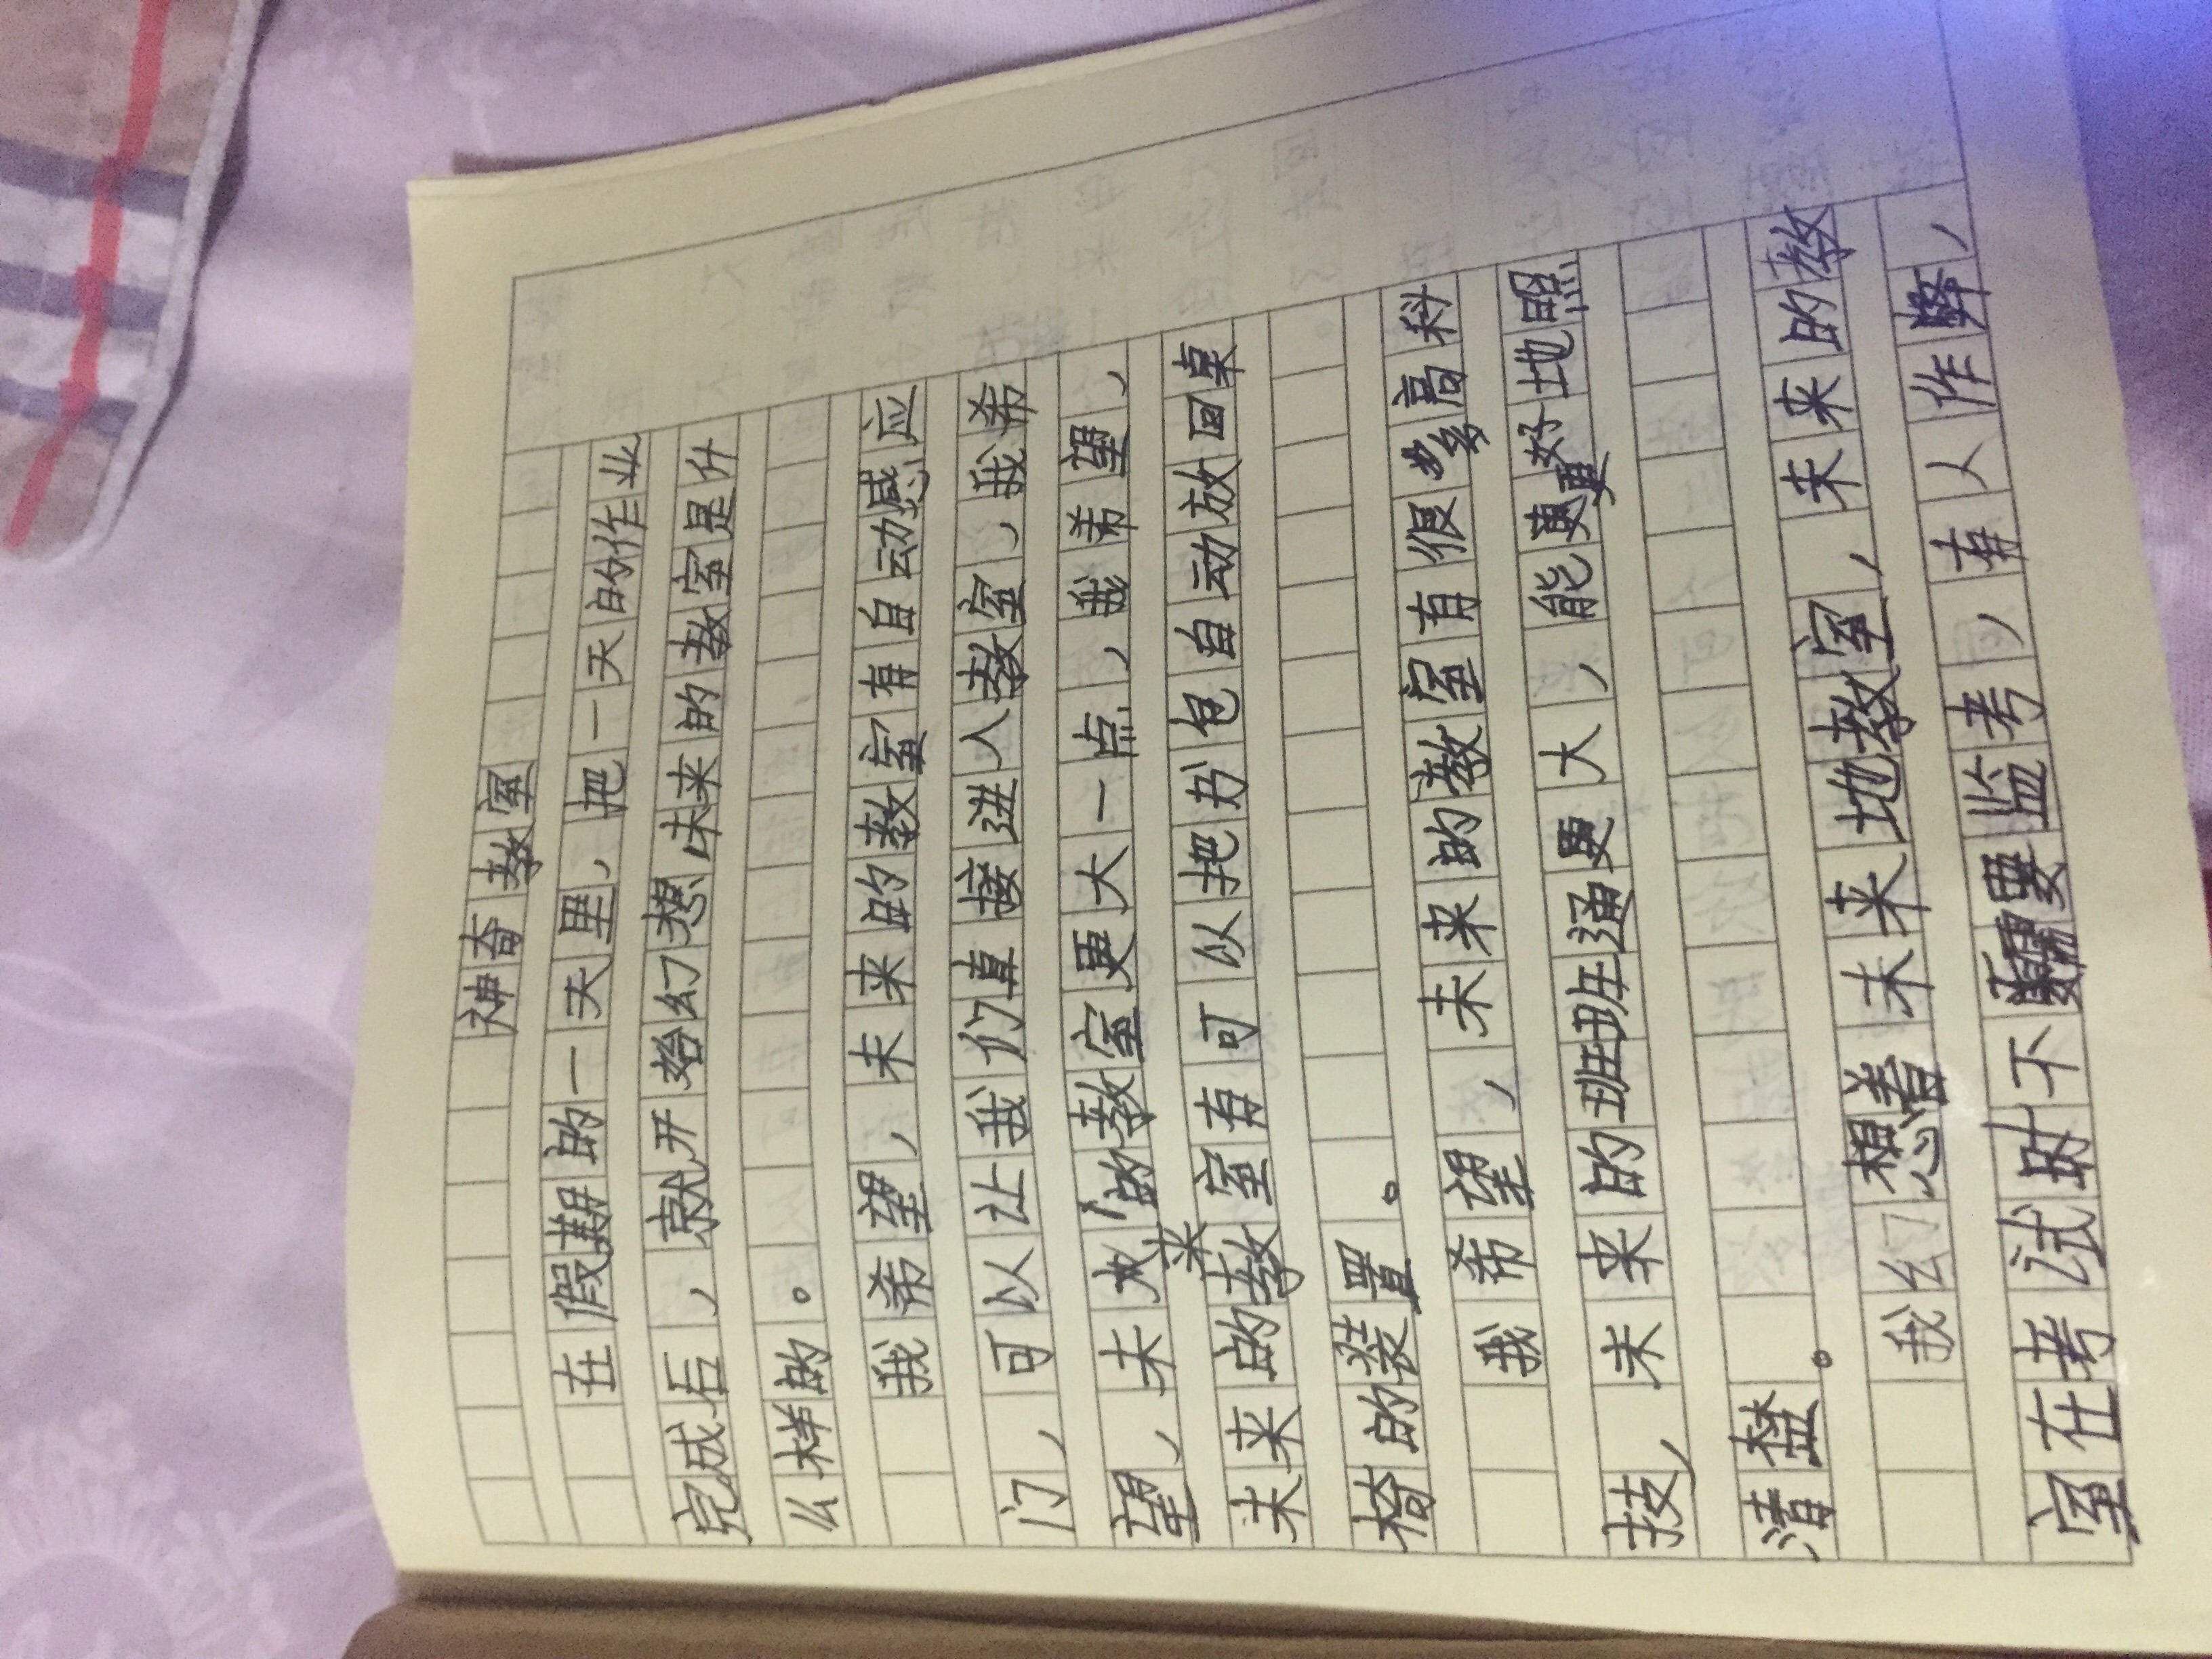 神奇教室
在假期的一天里，把一天的作业
完成后，就开始幻想未来的教室是什
么样的。
我希望，未来的教室有自动感应
门，可以让我们直接进入教室，我希
望，未来的教室更大一点，我希望，
未来的教室有可以把书包自动放回桌
椅的装置。
我希望，未来的教室有很多高科
技，未来的班班通更大，能更好地照
清楚。
我幻想着未来地教室，未来的教
室在考试时不需要监考，有人作弊，